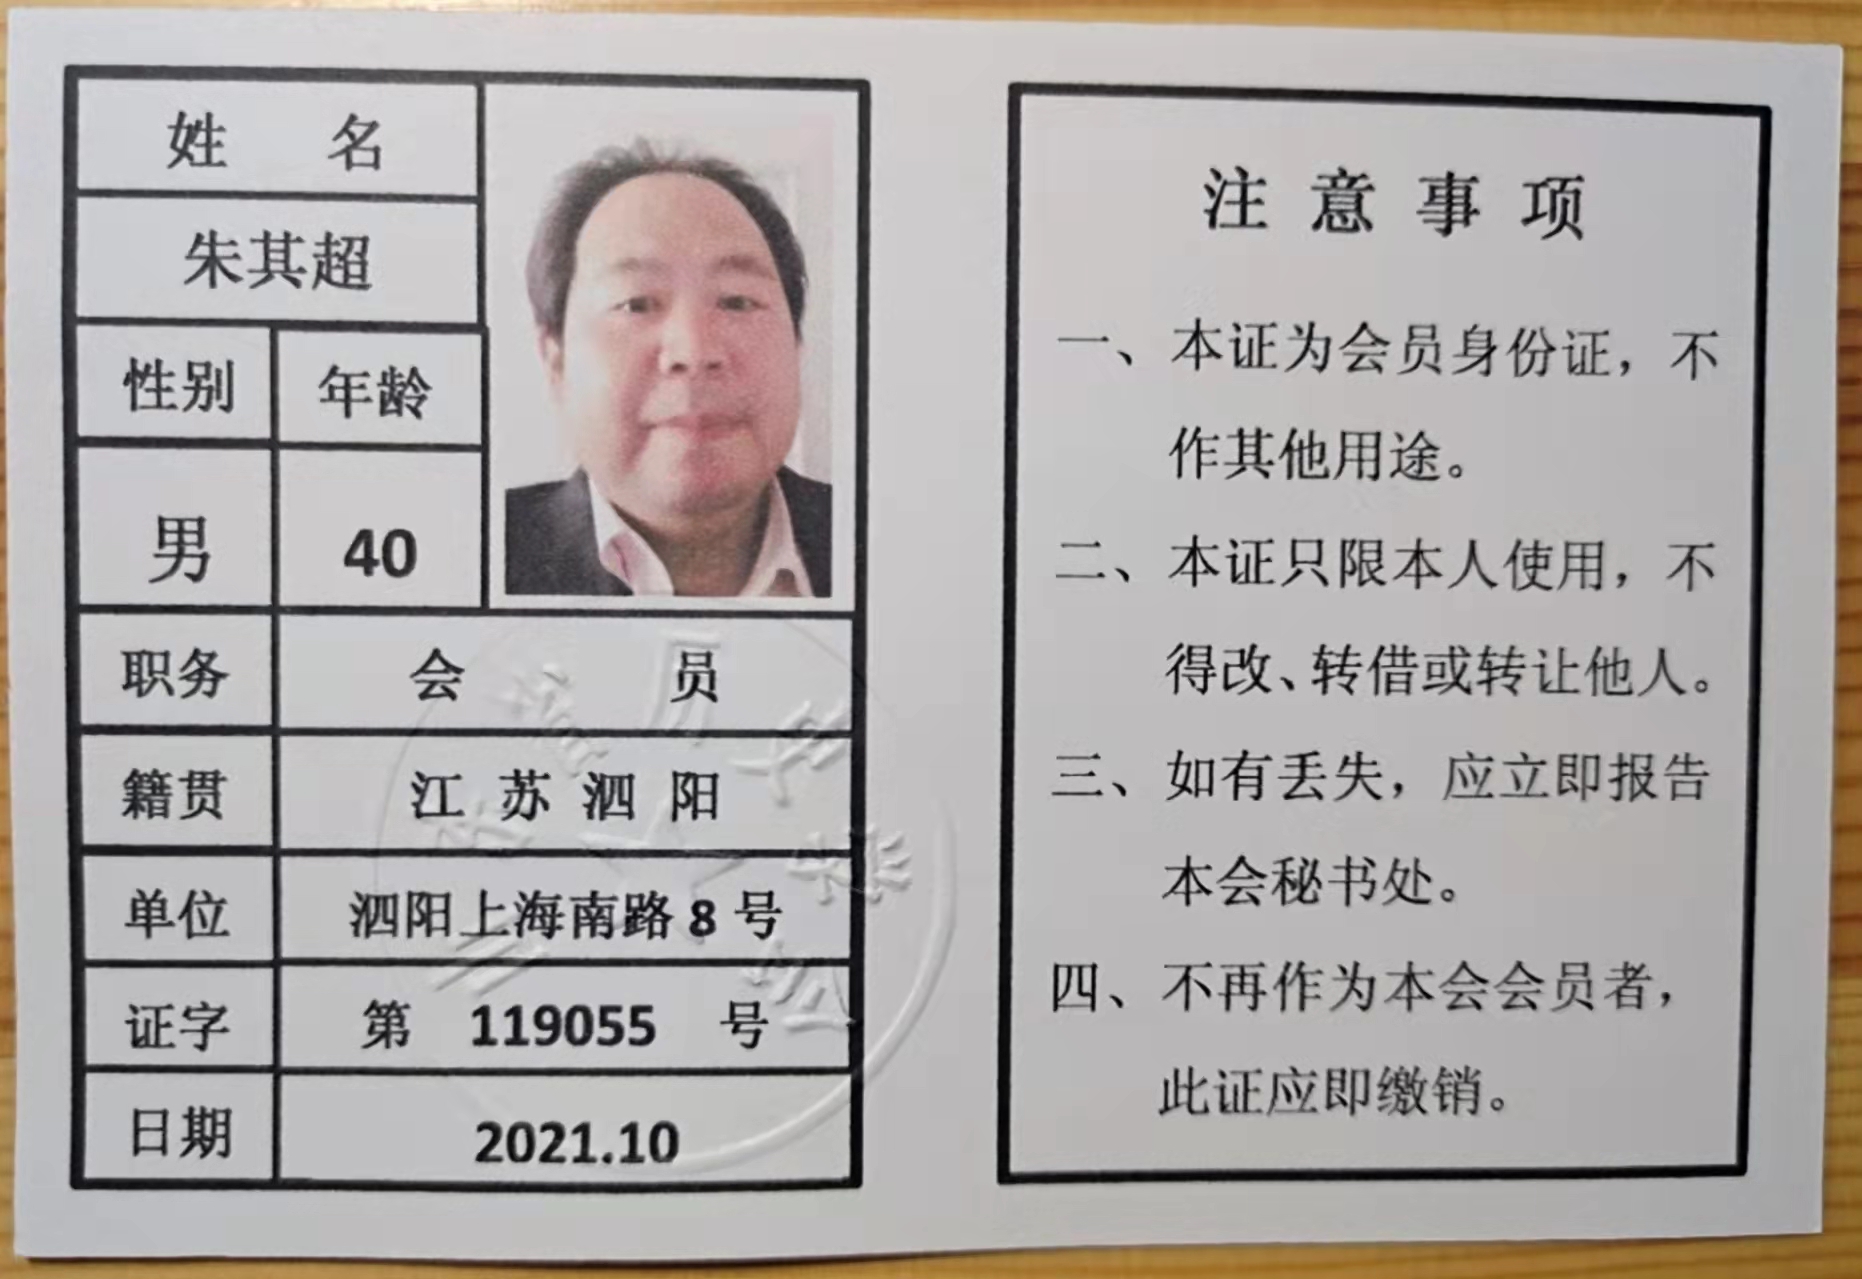 姓 名
朱其超
性别 年龄
男 40
职务 会 员
籍贯 江 苏 泗 阳
单位 泗阳上海南路 8 号
证字 第 119055 号
日期 2021.10
注 意 事 项
一、本证为会员身份证，不
作其他用途。
二、本证只限本人使用，不
得改、转借或转让他人。
三、如有丢失，应立即报告
本会秘书处。
四、不再作为本会会员者，
此证应即缴销。